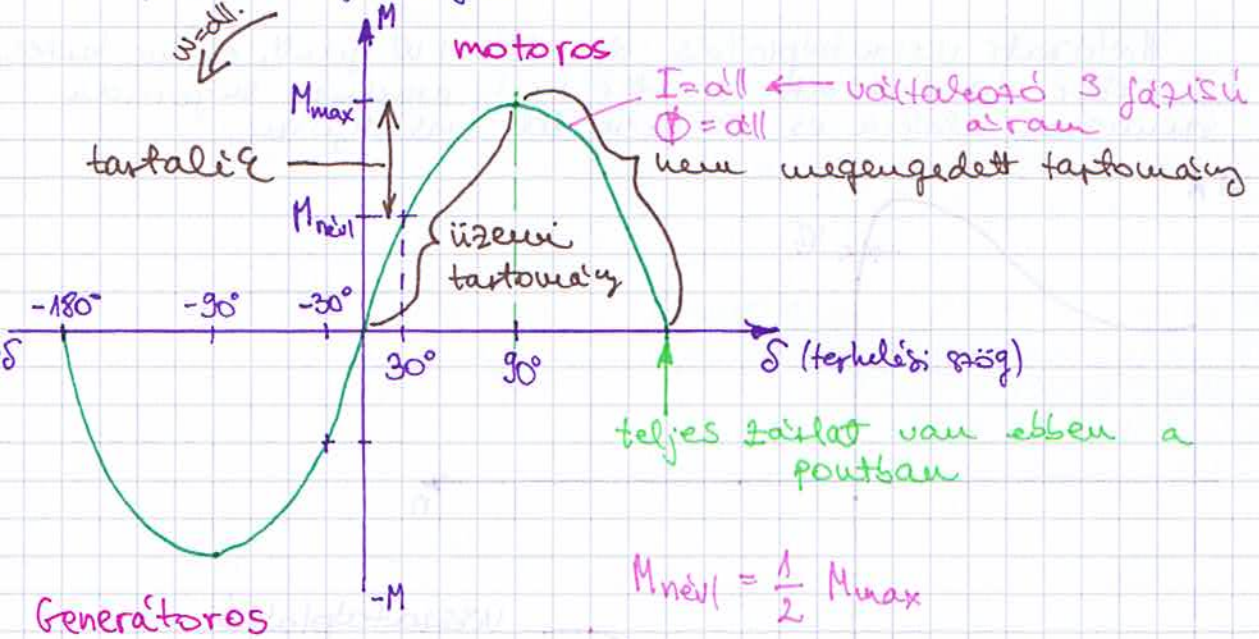 ω=áll.
M
motoros
Mmax
I=áll ← váltakozó 3 fázisú
Φ=áll áram
tartalék
nem megengedett tartomány
Mnévl
üzemi
tartomány
-180° -90° -30°
30° 90°
δ
δ (terhelési szög)
teljes zárlat van ebben a
pontban
Mnévl = 1/2 Mmax
-M
Generátoros